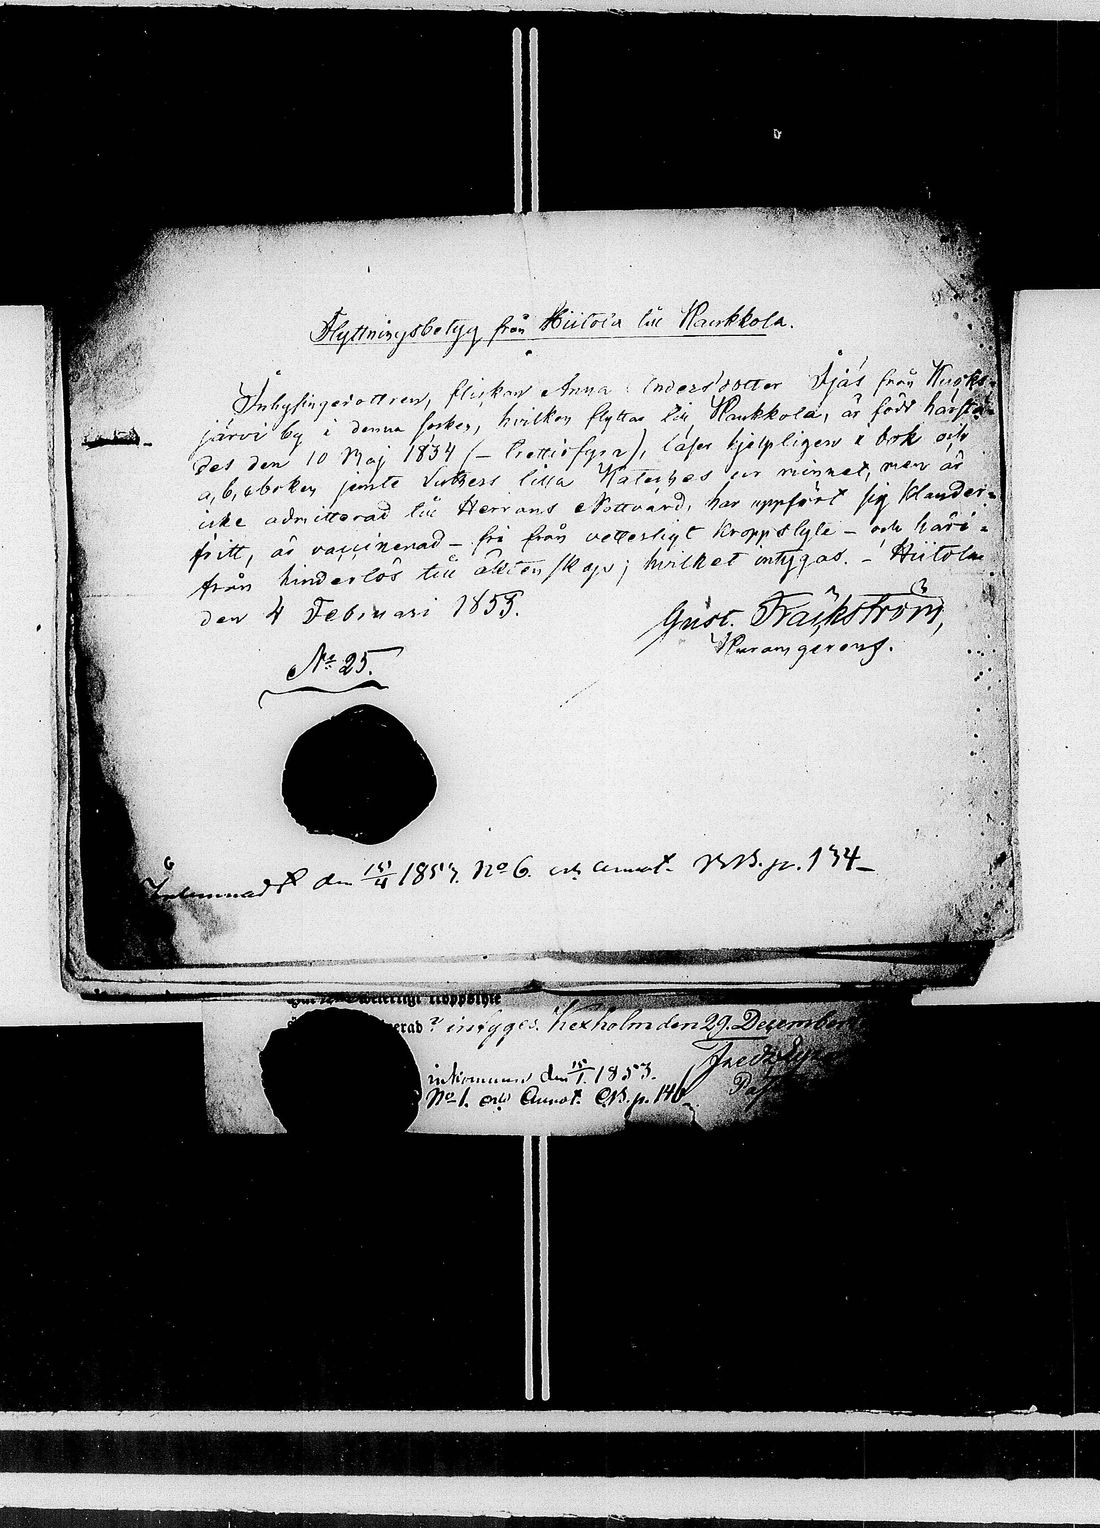 Flyttningsbetyg från Hiitola till Kaukkola.
Inhysingedottren, flickan Anna Andersdotter Äjäs från Kuoks-
järvi by i denna socken, hvilken flyttar till Kaukkola, är född härstä-
des den 10 Maj 1834 (– trettiofyra), läser hjelpligen i bok och
a, b, cboken jemte Luthers lilla Kateches ur minnet, men är
icke admitterad till Herrans Nattvard, har uppfört sig klander-
fritt, är vaccinerad – fri från vetterligt kroppslyte – och häri-
från hinderlös till äktenskap; hvilket intygas. – Hiitola
den 4 Februari 1853.
Gust. Fräckström,
N° 25.
Inlemnadt den 15/4 1853. No 6. och annot. KB. p. 134
vetterligt kroppslyte
erad? intygas. Kexholm den 29. December
inkommen den 15/1. 1853.
No 1. och Annot. CB. p. 146